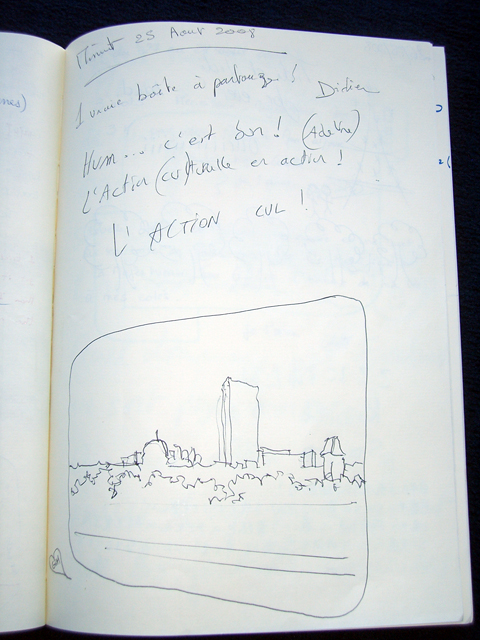 Minuit 25 Aout 2008
1 vraie boîte à partouze !
Didier
Hum... c'est bon ! (Adeline)
L'Action (cul)turelle en action !
L'ACTION CUL !